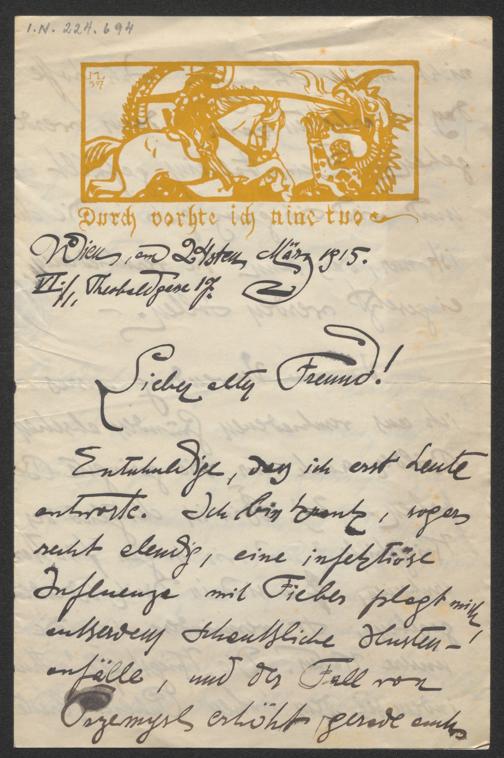 I.N. 224.694
Durch vorhte ich nine tuo
Wien, am 24sten März 1915.
VI/1, Theobaldgasse 17.
Lieber alter Freund!
Entschuldige, daß ich erst heute
antworte. Ich bin krank, sogar
recht elendig, eine infektiöse
Influenza mit Fieber plagt mich,
außerdem scheußliche Husten-
anfälle, und der Fall von
Przemysl erhöht gerade auch